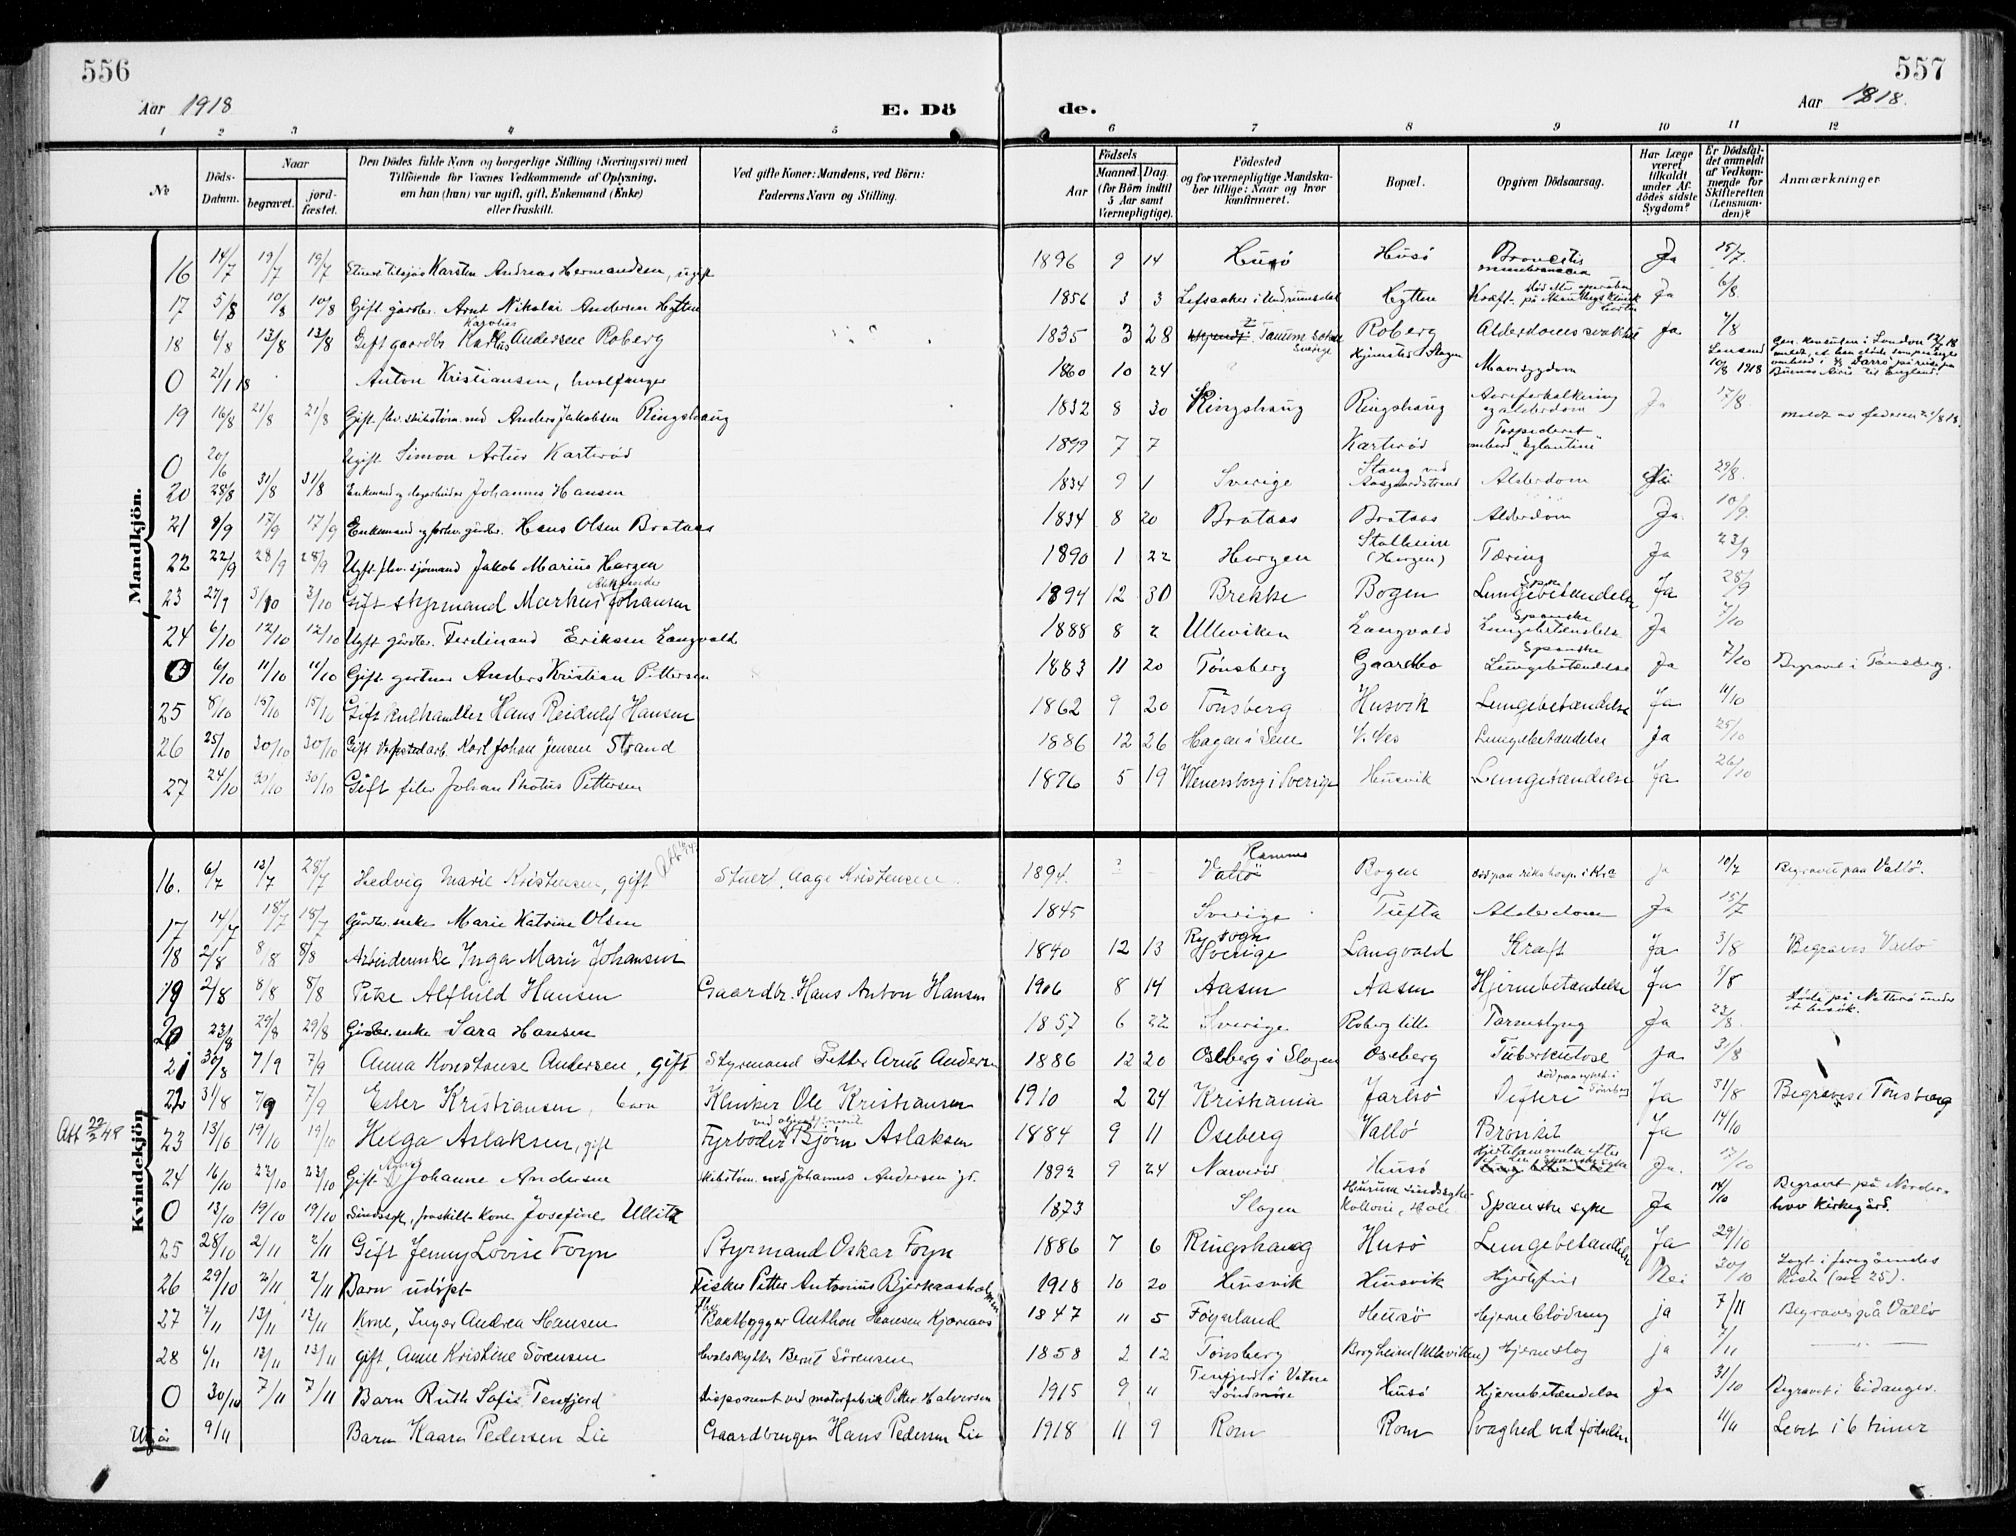 556
557
Aar 1918
E. Dö
de.
Aar 1918.
1 2 3 4 5 6 7 8 9 10 11 12
No
Döds-Datum.
Naar
begravet.
jord-fæstet.
Den Dödes fulde Navn og borgerlige Stilling (Næringsvei) med
Tilföiende for Voxnes Vedkommende af Oplysning,
om han (hun) var ugift, gift, Enkemand (Enke)
eller fraskilt.
Ved gifte Koner: Mandens, ved Börn:
Faderens Navn og Stilling.
Födsels
Aar
Maaned
Dag
(for Börn indtil 5 Aar samt Værnepligtige).
Födested
og for værnepligtige Mandska-
ber tillige: Naar og hvor
konfirmeret.
Bopæl.
Opgiven Dödsaarsag.
Har Læge været tilkaldt under Af-dödes sidste Sygdom?
Er Dödsfal-det anmeldt af Vedkom-mende for Skifteretten (Lensman-den)?
Anmærkninger
Mandkjön.
16 14/7 19/7 19/7 Karsten Andreas Hermandsen, ugift 1896 9 14 Husö Husö Ja 15/7.
17 5/8 10/8 10/8 Gift gårdbr. Arnt Nikolai Andersen Hytten 1856 3 3 Hytten Kræft Ja 6/8.
18 6/8 13/8 13/8 Gift gaardbr. Andersen Roberg 1835 3 28 Tanum Sverige Roberg Alderdomssvakhet Ja 7/8
0 21/1 18 Anton Kristiansen, hvalfanger 1860 10 24 Mavesygdom 10/8 1918
19 16/8 21/8 21/8 Gift fhv. Anders Jakobsen Ringshaug 1832 8 30 Ringshaug Ringshaug Aareforkalkning og alderdom Ja 17/8.
0 20/6 Ugift Simon Artur Karterød 1899 7 7 Karterød Torpederet ombord "Eglantine" meldt av faderen
20 28/8 31/8 31/8 Enkemand og Johannes Hansen 1834 9 1 Sverige Stang ved Aasgaardstrand Alderdom 29/8.
21 9/9 17/9 17/9 Enkemand og forhv. gårdbr. Hans Olsen Brataas 1834 8 20 Brataas Brataas Alderdom Ja. 10/9.
22 22/9 28/9 28/9 Ugft. fhv. sjømand Jakob Marius Horgen 1890 1 22 Horgen Stalheim (Horgen) Tæring Ja 23/9
23 27/9 3/10 3/10 Gift styrmand Markus Aleksander Johansen 1894 12 30 Brekke Bogen Lungebetændelse Ja 28/9
24 6/10 12/10 12/10 Ugft. gårdbr. Ferdinand Eriksen Langvold 1888 8 2 Ulleviken Langvold Spanske Lungebetændelse Ja 7/10
0 6/10 11/10 11/10 Gift gartner Anders Kristian Pettersen 1883 11 20 Tønsberg Gaardbo Spanske Lungebetændelse Ja 7/10 Begravet i Tønsberg.
25 8/10 15/10 15/10 Gift kulhandler Hans Reidulf Hansen 1862 9 20 Tönsberg Husvik Lungebetændelse Ja 11/10
26 25/10 30/10 30/10 Gift Verkstedarb. Karl Johan Jensen Strand 1886 12 26 Hagen i Sem V. Nes Lungebetændelse Ja 25/10
27 24/10 30/10 30/10 Gift filer Johan Pettersen 1876 5 19 Wenersborg i Sverige Husvik Lungebetændelse Ja 26/10
Kvindekjön
16. 6/7 12/7 28/7 Hedvig Marie Kristensen, gift Stuert, Aage Kristensen. 1894. Vallö Bogen död paa rikshosp. i Kra ja 10/7 Begravet paa Vallö.
17 14/7 18/7 18/7 Gårdbr. enke Marie Katrine Olsen 1845 Sverige Tufta Alderdom Ja 15/7
18 2/8 8/8 8/8 Arbeiderenke Inga Marie Johansen 1840 12 13 Sverige Langvold Kræft Ja 3/8 Begraves Vallö
19 2/8 8/8 8/8 Pike Alfhild Hansen Gaardbr. Hans Anton Hansen 1906 8 14 Aasen Aasen Hjernebetændelse Ja 7/8
20 23/8 29/8 29/8 Gårdbr. enke Sara Hansen 1857 6 22 Sverige Roberg lille Tarmslyng Ja 23/8. Døde på Nøtterø under et besøk.
21 30/8 7/9 7/9 Anna Konstanse Andersen, gift Styrmand Petter Arnt Andersen 1886 12 20 Oseberg i Slagen Oseberg Tuberkulose Ja 31/8
22 31/8 7/9 7/9 Ester Kristiansen, barn Klinker Ole Kristiansen 1910 2 24 Kristiania Jarlsø Difteri Ja 31/8 Begraves i Tönsberg
Att 22/2 49
23 13/10 19/10 19/10 Helga Aslaksen, gift Fyrbøder Bjørn Aslaksen 1884 9 11 Oseberg Vallö Bronkit Ja 14/10
24 16/10 22/10 22/10 Gift Agnes Johanne Andersen Johannes Andersen 1892 9 24 Narverød Husø Hjertelammelse efter Ja. 17/10
0 13/10 19/10 19/10 Sindssyk, fraskilt kone Josefine Ullitz 1873 Slagen Spanske syke Ja 14/10 Begravet på Norder-hov Kirkegård.
25 28/10 2/11 2/11 Gift Jenny Lovise Foyn Styrmand Oskar Foyn 1886 7 6 Ringshaug Husö Lungebetændelse Ja 29/10
26 29/10 2/11 2/11 Barn udöpt Fisker Petter Antonius Bjerkaasholmen 1918 10 20 Husvik Husvik Hjertefeil Nei 30/10 Lagt i foregåendes Kiste (nr 25).
27 7/11 13/11 13/11 Kone, Inger Andrea Hansen Fhv Baatbygger Anthon Hansen Kjærnaas 1847 11 5 Föynland Husö Hjerneblödning ja 7/11 Begraves på Vallö
28 6/11 13/11 13/11 gift, Anne Kristine Sörensen Hvalskytter Bernt Sörensen 1858 2 12 Tönsberg Borgheim (Ulleviken) Hjerneslag ja 7/11 — " —
0 30/10 7/11 7/11 Barn Ruth Sofie Tenfjord Disponent ved motorfabrik Petter Halvorsen 1915 9 11 Tenfjord i Vatne Söndmöre Husö Hjernebetændelse Ja 31/10 Begravet i Eidanger.
9/11 Barn Kaare Pedersen Lie Gaardbruger Hans Pedersen Lie 1918 11 9 Rom Rom Svaghed ved födselen 11/11 Levet i 6 timer